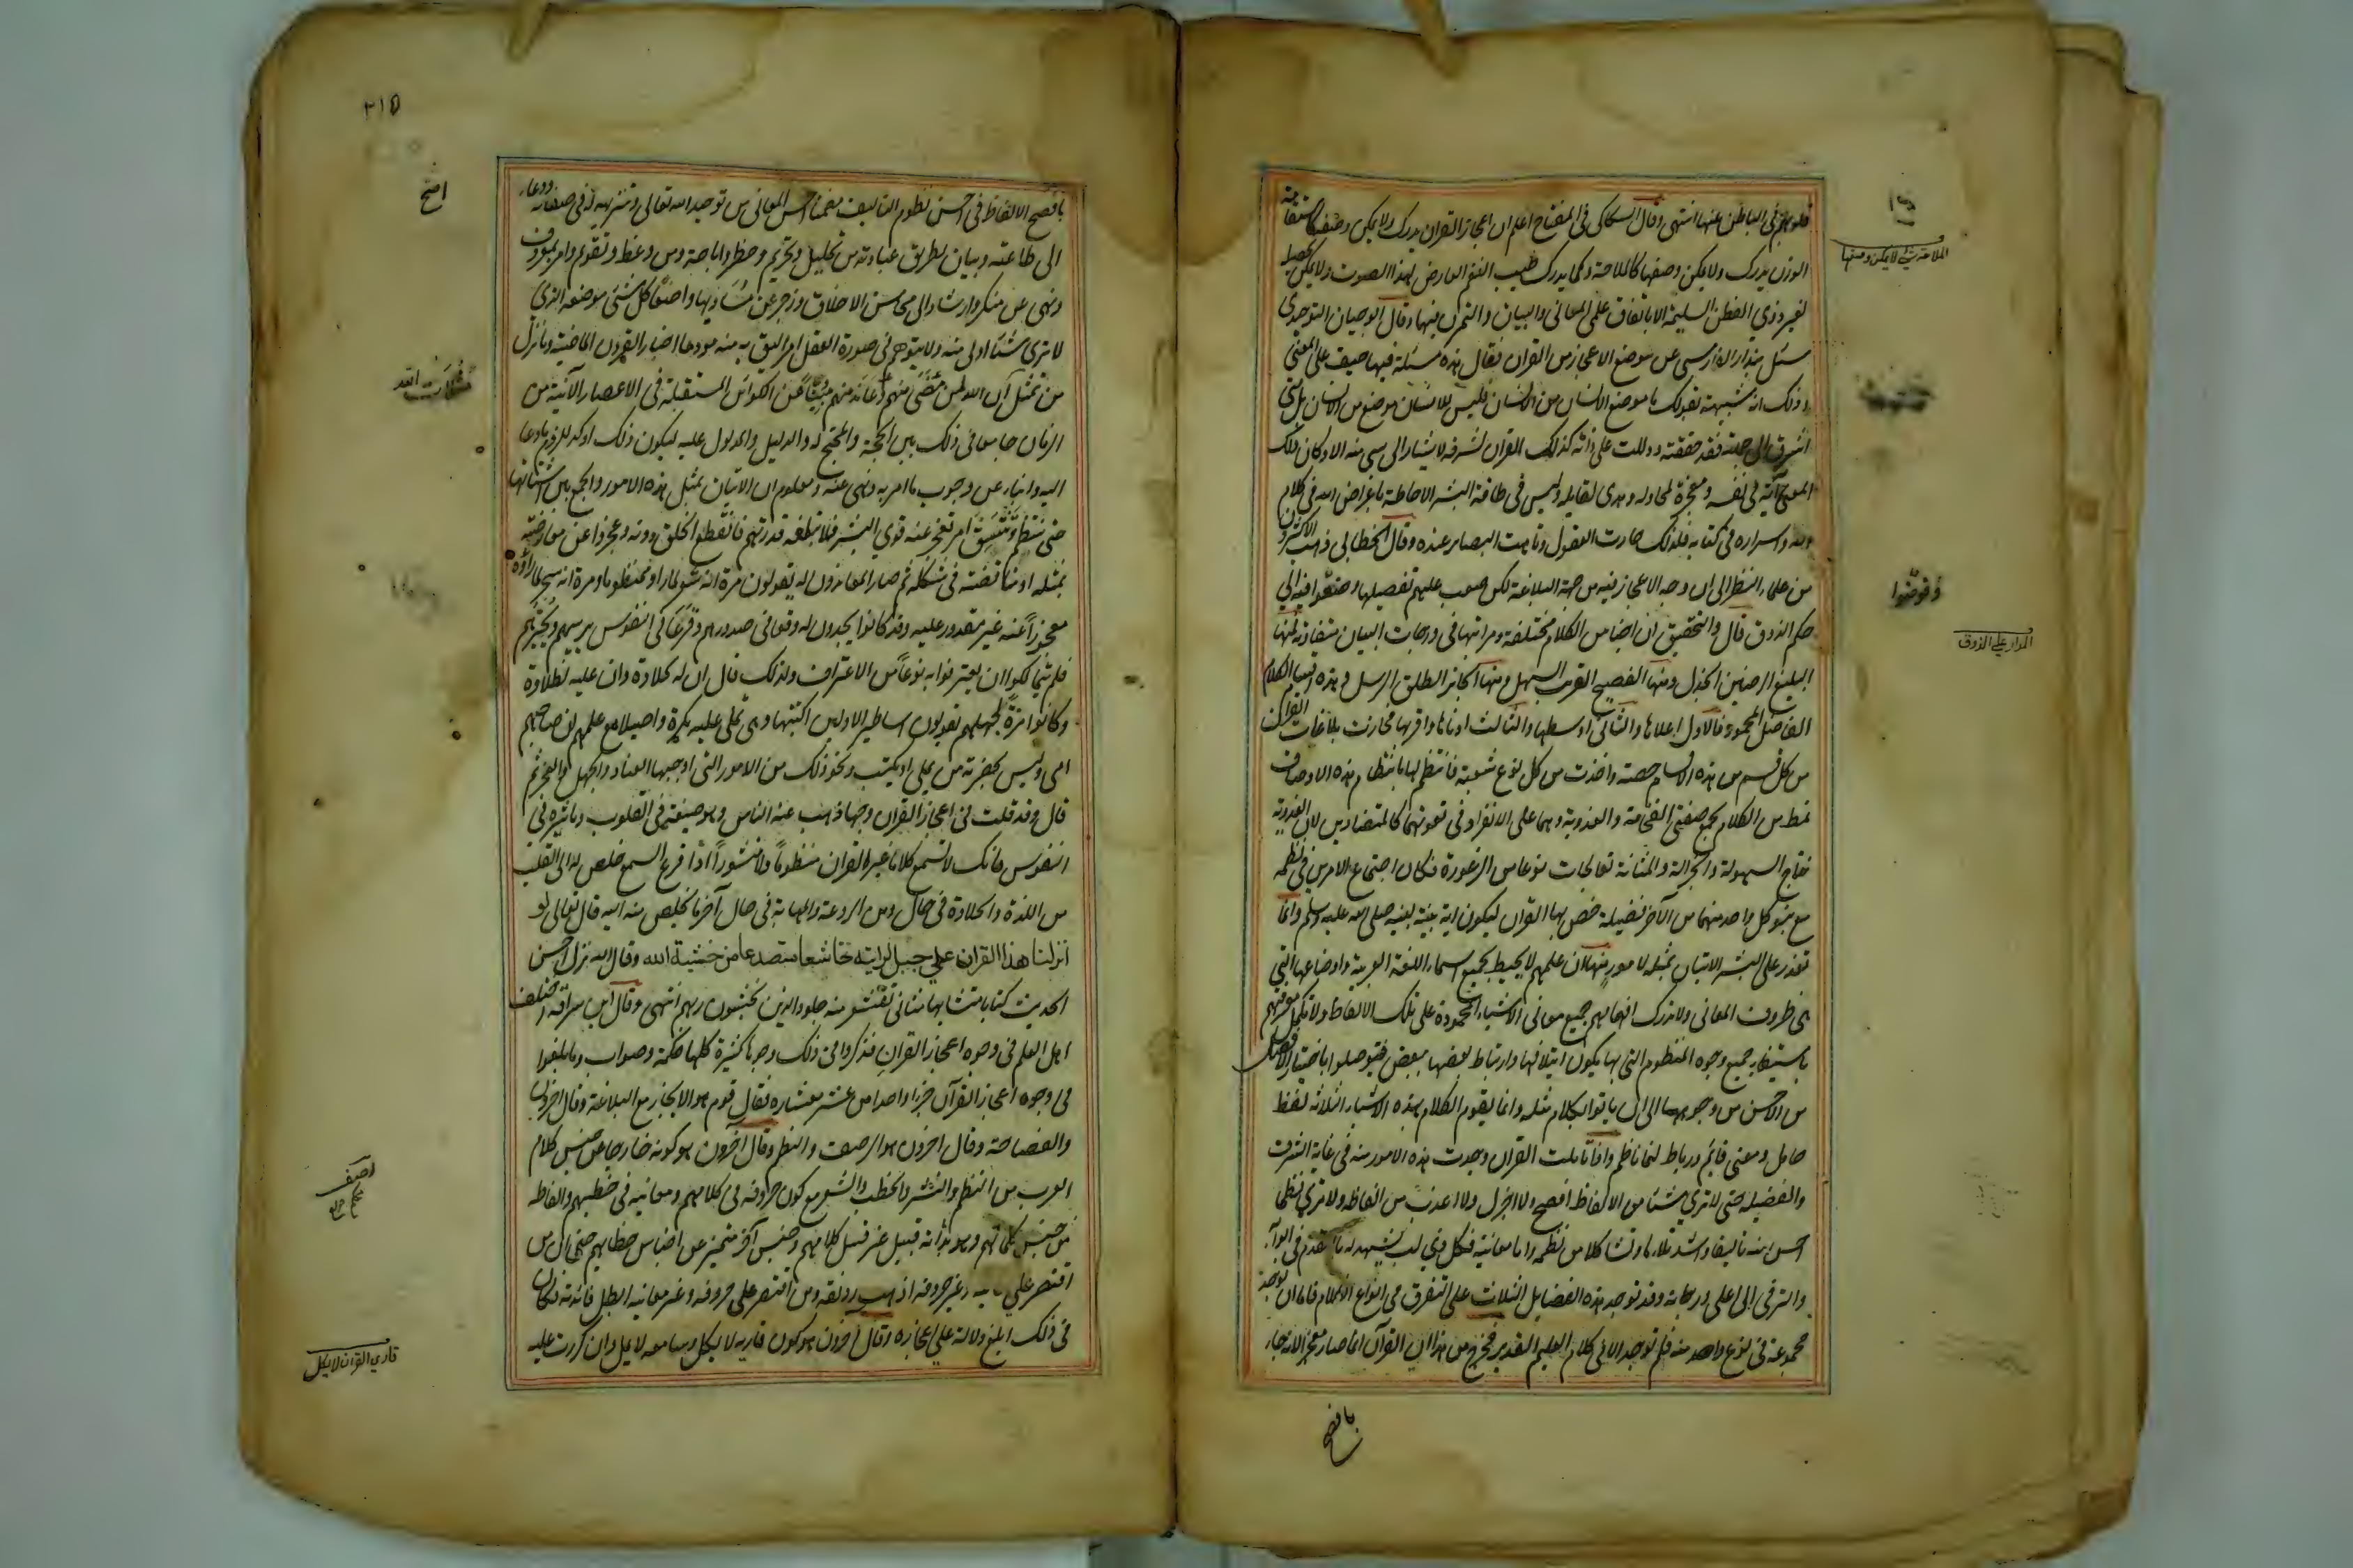 قلوبهم في الباطن عنها انتهى وقال السكاكي في المفتاح اعلم ان اعجاز القران يدرك ولا يمكن وصفه كاستقامة
الوزن يدرك ولا يمكن وصفها كالملاحة وكما يدرك طيب النغم العارض لهذا الصوت ولا يمكن تحصيله
لغير ذوي الفطن السليمة الا باتقان علمي المعاني والبيان والتمرن فيها وقال ابو حيان التوحيدي
سئل بندار الفارسي عن موضع الاعجاز من القران فقال هذه مسئلة فيها حيف على المعنى
وذلك انه شبيهة بقولك ما موضع الانسان من الانسان فليس للانسان موضع من الانسان بل متى
اشرت الى جملته فقد حققته ودللت على ذاته كذلك القران لشرفه لا يشار الى شي منه الا وكان ذلك
المعنى آية في نفسه ومعجزة لمحاوله وهدى لقايله وليس في طاقة البشر الاحاطة باغراض الله في كلامه
واسراره في كتابه فلذلك حارت العقول وتاهت البصاير عنده وقال الخطابي ذهب الاكثرون
من علماء النظر الى ان وجه الاعجاز فيه من جهة البلاغة لكن صعب عليهم تفصيلها وصغوا فيه الى
حكم الذوق قال والتحقيق ان اجناس الكلام مختلفة ومراتبها في درجات البيان متفاوتة فمنها
البليغ الرصين الجزل ومنها الفصيح القريب السهل ومنها الجائز الطلق الرسل وهذه اقسام الكلام
الفاضل المحمود فالاول اعلاها والثاني اوسطها والثالث ادناها واقربها فحازت بلاغات القران
من كل قسم من هذه الاقسام حصة واخذت من كل نوع شعبة فانتظم لها بانتظام هذه الاوصاف
نمط من الكلام يجمع صفتي الفخامة والعذوبة وهما على الانفراد في نعوتهما كالمتضادين لان العذوبة
نتاج السهولة والجزالة والمتانة تعالجان نوعا من الزعورة فكان اجتماع الامرين في نظمه
مع نبو كل واحد منهما من الآخر فضيلة خص بها القران ليكون اية بينة لنبيه صلى الله عليه وسلم وانما
تعذر على البشر الاتيان بمثله لامور منها ان علمهم لا يحيط بجميع اسماء اللغة العربية واوضاعها التي
هي ظروف المعاني ولا تدرك افهامهم جميع معاني الاشياء المحمودة على تلك الالفاظ ولا تكمل معرفتهم
باستيفاء جميع وجوه المنظوم التي بها يكون ايتلافها وارتباط بعضها ببعض فيتوصلوا باختيار الافضل
من الاحسن من وجوهها الى ان ياتوا بكلام مثله وانما يقوم الكلام بهذه الاشياء الثلاثة لفظ
حامل ومعنى قايم ورباط لهما ناظم واذا تاملت القران وجدت هذه الامور منه في غاية الشرف
والفضيله حتى لا ترى شيئا من الالفاظ افصح ولا اجزل ولا اعذب من الفاظه ولا ترى نظما
احسن منه تاليفا واشد تلاوما وتشاكلا من نظمه واما معانيه فكل ذي لب يشهد له بالتقدم في ابوابه
والترقي الى اعلى درجاته وقد توجد هذه الفضايل الثلاث على التفرق في انواع الكلام فاما ان توجد
مجموعة في نوع واحد منه فلم توجد الا في كلام العليم القدير فخرج من هذا ان القرآن انما صار معجزا لانه جاء
بافصح
الملاحة شي لا يمكن وصفها
وفوضوا
المدار على الذوق
٢١٥
بافصح الالفاظ في احسن نظوم التاليف مضمنا احسن المعاني من توحيد الله تعالى وتنزيهه له في صفاته ودعاء
الى طاعته وبيان لطريق عبادته من تحليل وتحريم وحظر واباحة ومن وعظ وتقويم وامر بمعروف
ونهي عن منكر وارشاد الى محاسن الاخلاق وزجر عن مساويها واضعا كل شئ موضعه الذي
لا ترى شيئا اولى منه ولا يتوهم في صورة العقل امر اليق به منه مودعا اخبار القرون الماضية وما نزل
من مثلات الله لمن مضى منهم وعاند منهم منبئا عن الكوائن المستقبلة في الاعصار الآتية من
الزمان جامعا في ذلك بين الحجة والمحتج له والدليل والمدلول عليه ليكون ذلك اوكد للزوم ما دعا
اليه وانباء عن وجوب ما امر به ونهى عنه ومعلوم ان الاتيان بمثل هذه الامور والجمع بين اشتاتها
حتى تنتظم وتتسق امر تعجز عنه قوى البشر فلا تبلغه قدرتهم فانقطع الخلق دونه وعجزوا عن معارضته
بمثله او مناقضته في شكله ثم صار المعاندون له يقولون مرة انه شعر لما راوه منظوما ومرة انه سحر لما راوه
معجوزا عنه غير مقدور عليه وقد كانوا يجدون له وقعا في صدورهم وقرعا في النفوس يرهبهم ويحيرهم
فلم يتمالكوا ان يعترفوا به نوعا من الاعتراف ولذلك قال ان له لحلاوة وان عليه لطلاوة
وكانوا مرة لجهلهم يقولون اساطير الاولين اكتتبها فهي تملى عليه بكرة واصيلا مع علمهم ان صاحبهم
امي وليس بحضرته من يملي او يكتب ونحو ذلك من الامور التي اوجبها العناد والجهل والعجز ثم
قال وقد قلت في اعجاز القران وجها ذهب عنه الناس وهو صنيعه في القلوب وتاثيره في
النفوس فانك لا تسمع كلاما غير القران منظوما ولا منثورا اذا قرع السمع خلص له الى القلب
من اللذة والحلاوة في حال ومن الروعة والمهابة في حال آخر ما يخلص منه اليه قال تعالى لو
انزلنا هذا القران علي جبل لرايته خاشعا متصدعا من خشية الله وقال الله نزل احسن
الحديث كتابا متشابها مثاني تقشعر منه جلود الذين يخشون ربهم انتهى وقال ابن سراقة اختلف
اهل العلم في وجوه اعجاز القران فذكروا في ذلك وجوها كثيرة كلها حكمة وصواب وما بلغوا
في وجوه اعجاز القرآن جزءا واحدا من عشر معشاره فقال قوم هو الايجاز مع البلاغة وقال اخرون هو البيان
والفصاحة وقال اخرون هو الرصف والنظم وقال آخرون هو كونه خارجا عن جنس كلام
العرب من النظم والنثر والخطب والشعر مع كون حروفه في كلامهم ومعانيه في خطبهم والفاظه
من جنس كلماتهم وهو بذاته قبيل غير قبيل كلامهم وجنس آخر متميز عن اجناس خطابهم حتى ان من
اقتصر علي معانيه وغير حروفه اذهب رونقه ومن اقتصر على حروفه وغير معانيه ابطل فائدته فكان
في ذلك ابلغ دلالة على اعجازه وقال آخرون هو كون قاريه لا يكل وسامعه لا يمل وان كررت عليه
افتح
مثلات الله
قاري القران لا يكل